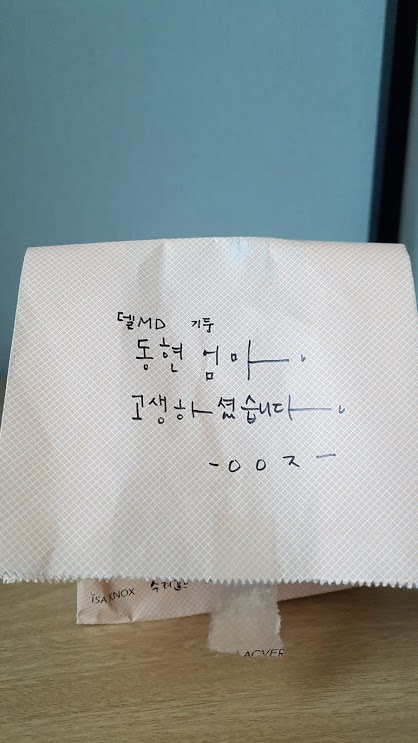 델MD 기둥
동현 엄마
고생하셨습니다
-ㅇㅇㅈ-
ISA KNOX